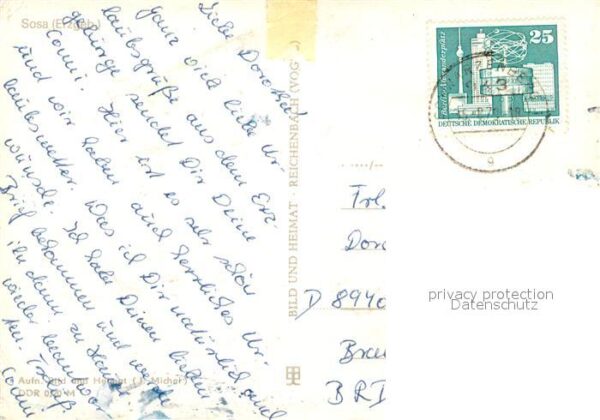 Sosa (Erzgeb.)
Liebe Dorothea!
Ganz viele liebe Ur-
laubsgrüße aus dem Erz-
gebirge sendet Dir Deine
Conni. Hier ist es sehr schön
und wir haben auch herrliches Ur-
laubswetter. Was ich Dir natürlich auch
wünsche. Ich habe Deinen lieben
Brief bekommen und werde
ihn dann zu Hause
wieder beantwor-
ten. Tschüß
Conni
Aufn. Bild und Heimat (J. Michel)
DDR 0,20 M
BILD UND HEIMAT · REICHENBACH (VOGTL)
25
Berlin-Alexanderplatz
DEUTSCHE DEMOKRATISCHE REPUBLIK
Frl.
Dor
D 8940
BRD
privacy protection
Datenschutz